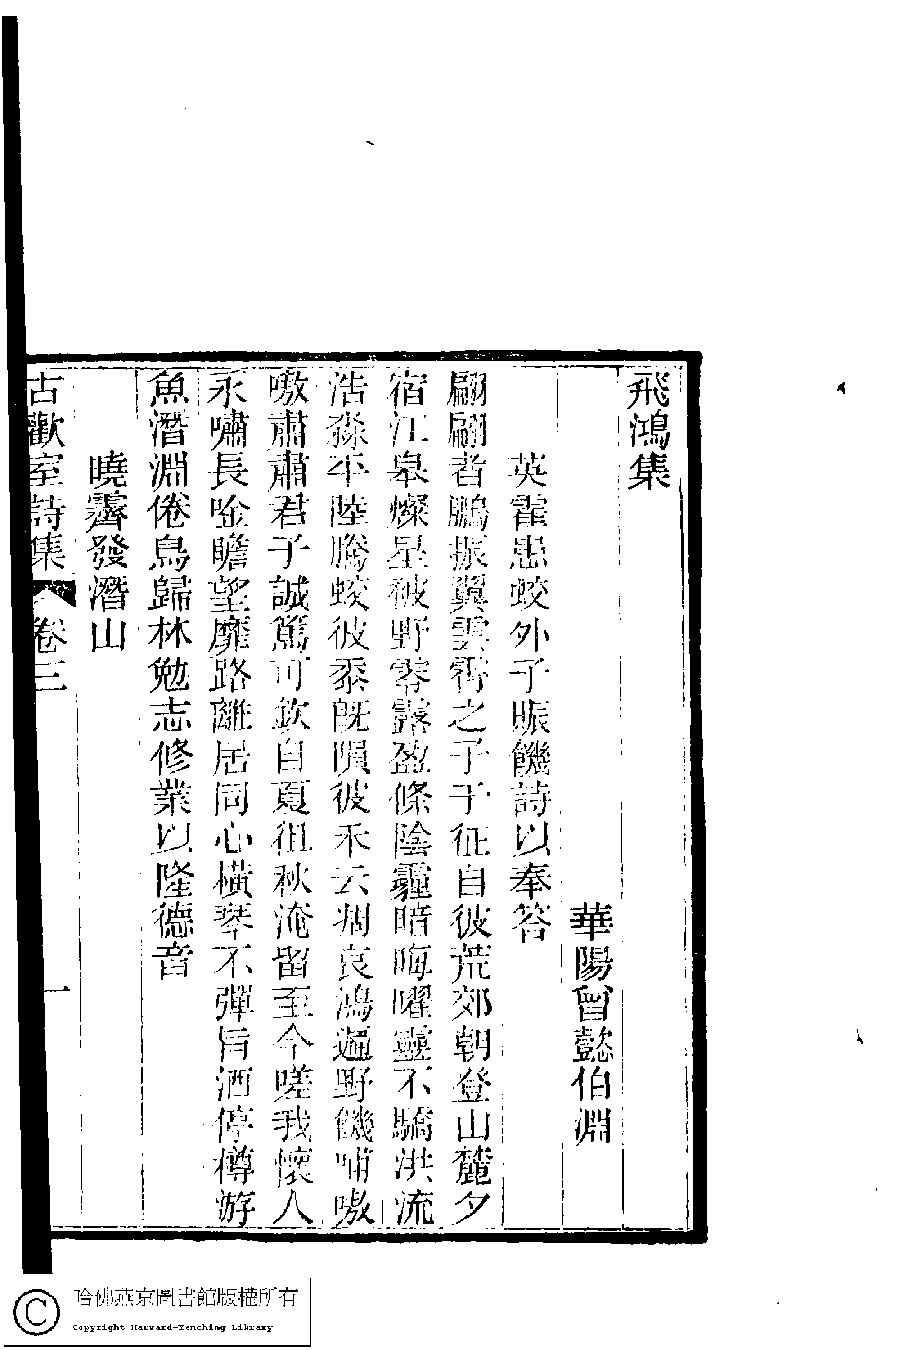 飛鴻集
華陽曾懿伯淵
英霍患蛟外子賑饑詩以奉答
翩翩者鵬振翼雲霄之子于征自彼荒郊朝登山麓夕
宿江皋燦星被野零露盈條陰霾暗晦曜靈不驕洪流
浩淼平陸騰蛟彼黍既隕彼禾云凋哀鴻遍野饑哺嗷
嗷肅肅君子誠篤可欽自夏徂秋淹留至今嗟我懷人
永嘯長唫瞻望靡路離居同心橫琴不彈旨酒停樽游
魚潛淵倦鳥歸林勉志修業以隆德音
曉霽發潛山
古歡室詩集 卷三 一
哈佛燕京圖書館版權所有
Copyright Harvard-Yenching Library